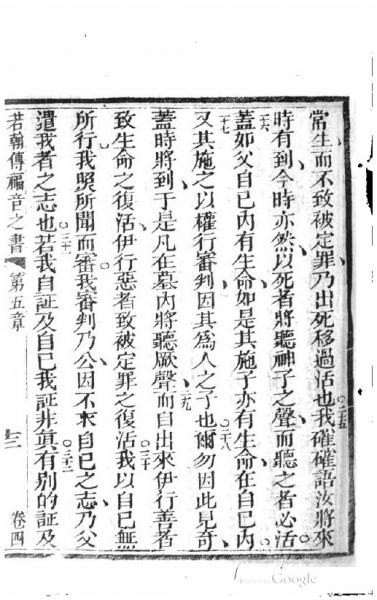 常生而不致被定罪乃出死移過活也○二十五我確確語汝將來
時有到今時亦然以死者將聽神子之聲而聽之者必活○
二十六蓋如父自己內有生命如是其施子亦有生命在自己內○
二十七又其施之以權行審判因其為人之子也○二十八爾勿因此見奇
蓋時將到于是凡在墓內將聽厥聲二十九而自出來伊行善者
致生命之復活伊行惡者致被定罪之復活○三十我以自己無
所行我照所聞而審我審判乃公因不來自己之志乃父
遣我者之志也○三十一若我自証及自己我証非真○三十二有別的証及
若翰傳福音之書 第五章 卷四
Google